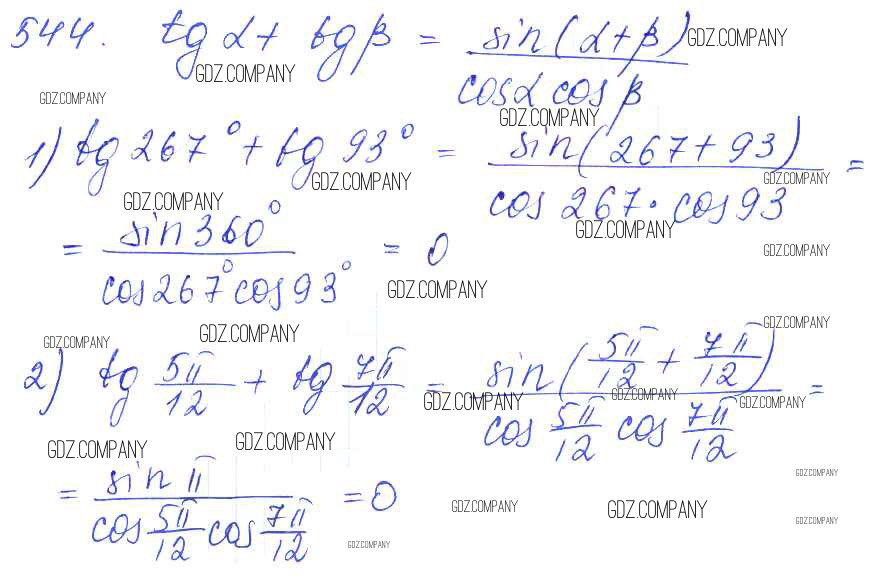 544. tg α + tg β = sin(α+β) / cos α cos β GDZ.COMPANY
GDZ.COMPANY
GDZ.COMPANY
GDZ.COMPANY
1) tg 267° + tg 93° = sin(267+93) / cos 267 · cos 93 =
GDZ.COMPANY GDZ.COMPANY
GDZ.COMPANY
GDZ.COMPANY
= sin 360° / cos 267° cos 93° = 0
GDZ.COMPANY
GDZ.COMPANY
GDZ.COMPANY
GDZ.COMPANY GDZ.COMPANY
2) tg 5π/12 + tg 7π/12 = sin(5π/12 + 7π/12) / cos 5π/12 cos 7π/12 =
GDZ.COMPANY GDZ.COMPANY GDZ.COMPANY
GDZ.COMPANY GDZ.COMPANY
GDZ.COMPANY
= sin π / cos 5π/12 cos 7π/12 = 0
GDZ.COMPANY GDZ.COMPANY
GDZ.COMPANY
GDZ.COMPANY